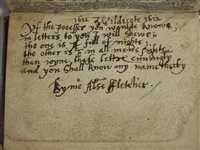 1612 1612
Yf the posesser you woulde knowe,
in letters to you I will shewe,
the one is A full of mighte,
the other is F in all mens sighte
then ioyne these letters
and you shall know my name therby
By me Alse Fletcher.